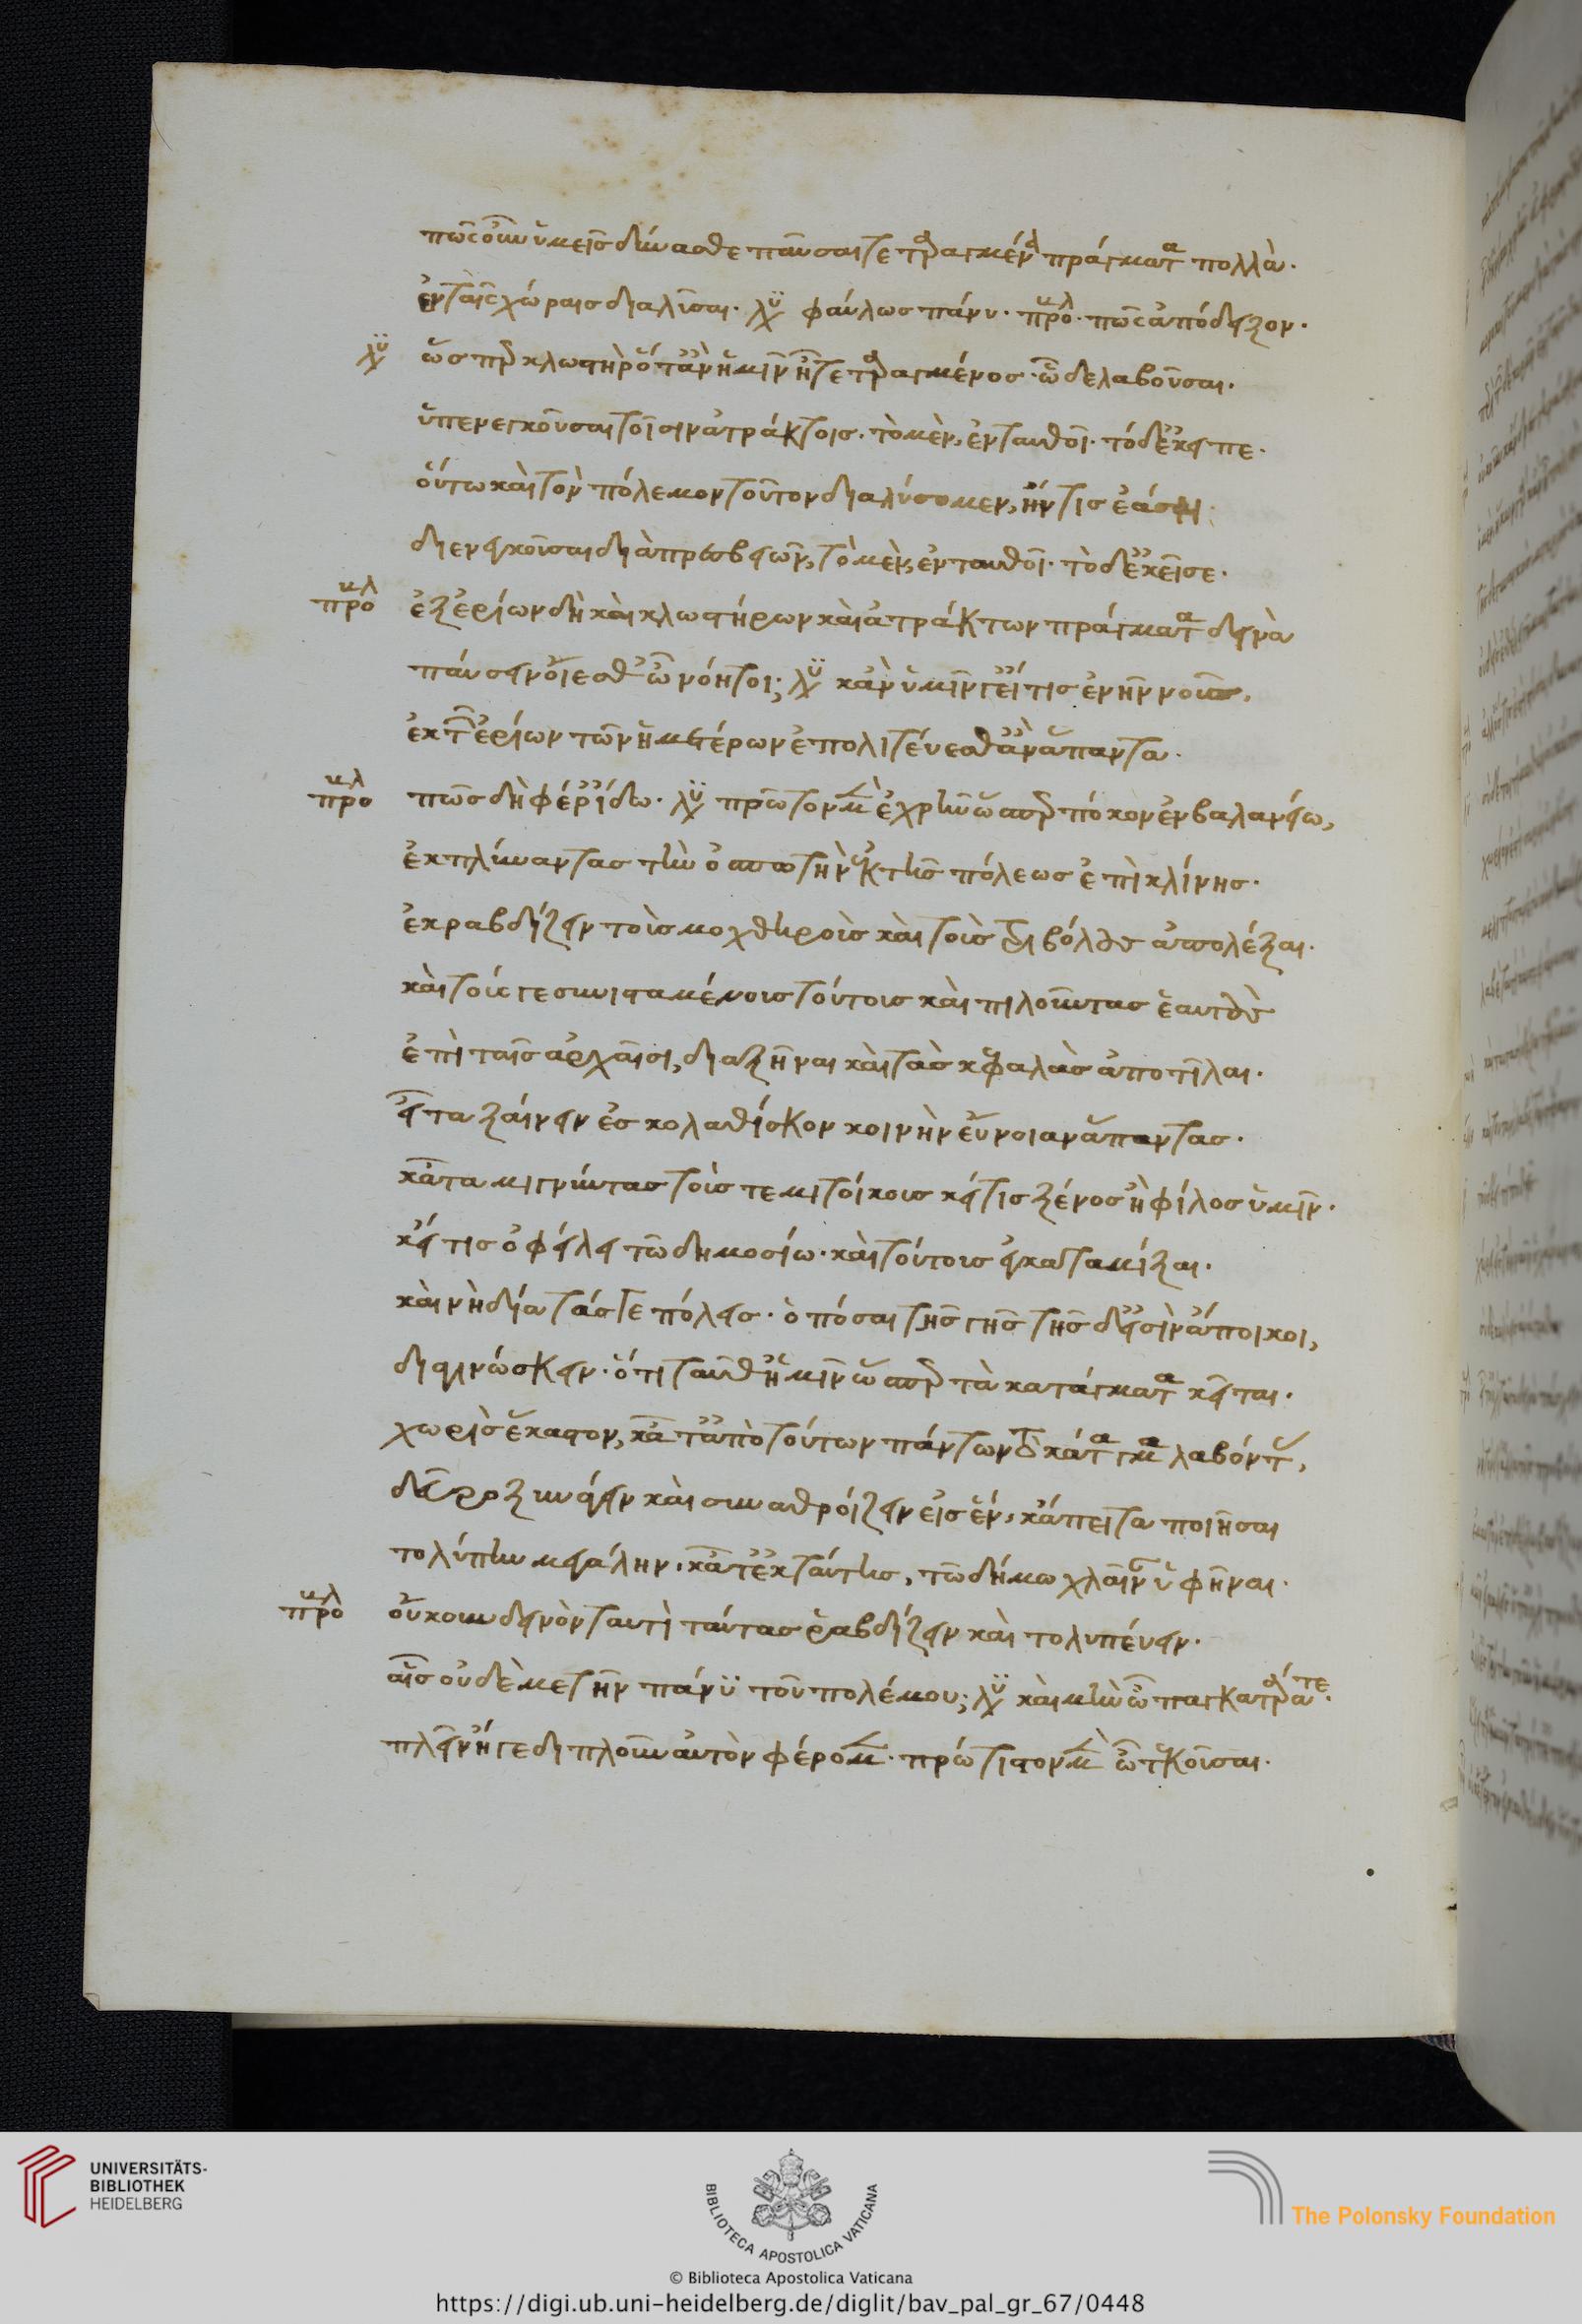 πῶς οὖν ὑμεῖς δύνασθε παῦσαι τεταραγμένα πράγματα πολλὰ.
ἐν ταῖς χώραις διαλῦσαι. λυ φαύλως πάνυ. προβλ. πῶς ἀπόδειξον.
λυ ὥσπερ κλωστὴρ ὅταν ἡμῖν ᾖ τεταραγμένος. ὧδε λαβοῦσαι.
ὑπενεγκοῦσαι τοῖσιν ἀτράκτοις. τὸ μὲν, ἐνταυθοῖ. τὸ δ' ἐκεῖσε.
οὕτω καὶ τὸν πόλεμον τοῦτον διαλύσομεν, ἤν τις ἐάσῃ.
διενεγκοῦσαι διὰ πρεσβειῶν, τὸ μὲν, ἐνταυθοῖ. τὸ δ' ἐκεῖσε.
προβλ ἐξ ἐρίων δὴ καὶ κλωστήρων καὶ ἀτράκτων πράγματα δεινὰ
παύσειν οἴεσθ' ὦ νόητοι; λυ κἂν ὑμῖν γ' εἴ τις ἐνῆν νοῦς,
ἐκ τῶν ἐρίων τῶν ἡμετέρων ἐπολιτεύεσθ' ἂν ἅπαντα.
προβλ πῶς δὴ φέρ' ἴδω. λυ πρῶτον μὲν ἐχρῆν ὥσπερ πόκον ἐν βαλανείω,
ἐκπλύναντας τὴν οἰσπώτην ἐκ τῆς πόλεως ἐπὶ κλίνης.
ἐκραβδίζειν τοὺς μοχθηροὺς καὶ τοὺς τριβόλους ἀπολέξαι.
καὶ τούς γε συνισταμένους τούτους καὶ πιλοῦντας ἑαυτοὺς
ἐπὶ ταῖς ἀρχαῖσι, διαξῆναι καὶ τὰς κεφαλὰς ἀποτῖλαι.
εἶτα ξαίνειν ἐς καλαθίσκον κοινὴν εὔνοιαν ἅπαντας.
κᾆτα μιγνύντας τούς τε μετοίκους κεἴ τις ξένος ἢ φίλος ὑμῖν.
κεἴ τις ὀφείλει τῶ δημοσίω. καὶ τούτους ἐγκαταμίξαι.
καὶ νὴ δία τάς γε πόλεις. ὁπόσαι τῆς γῆς τῆς δ' εἰσὶν ἄποικοι,
διαγινώσκειν. ὅτι ταῦθ' ἡμῖν ὥσπερ τὰ κατάγματα κεῖται.
χωρὶς ἕκαστον, κᾆτ' ἀπὸ τούτων πάντων τὸ κάταγμα λαβόντας,
δεῦρο ξυνάγειν καὶ συναθροίζειν εἰς ἕν, κἄπειτα ποιῆσαι
τολύπην μεγάλην, κᾆτ' ἐκ ταύτης, τῶ δήμω χλαῖναν ὑφῆναι.
προβλ οὔκουν δεινὸν ταυτὶ ταύτας ῥαβδίζειν καὶ τολυπεύειν.
αἷς οὐδὲ μετῆν πάνυ τοῦ πολέμου; λυ καὶ μὴν ὦ παγκατάρατε.
πλεῖν ἤ γε διπλοῦν αὐτὸν φέρομεν. πρώτιστον μὲν ὦ τεκοῦσαι.
UNIVERSITÄTS-
BIBLIOTHEK
HEIDELBERG
BIBLIOTECA APOSTOLICA VATICANA
The Polonsky Foundation
© Biblioteca Apostolica Vaticana
https://digi.ub.uni-heidelberg.de/diglit/bav_pal_gr_67/0448